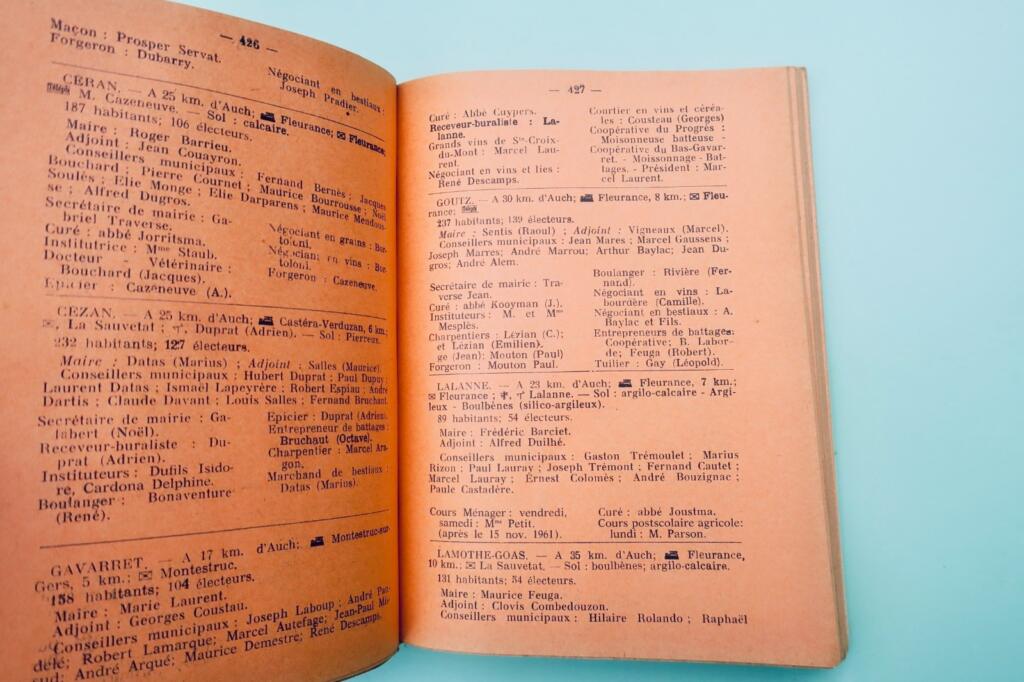 — 426 —
Maçon : Prosper Servat.
Forgeron : Dubarry.
Négociant en bestiaux :
Joseph Pradier.
CERAN. — A 25 km. d'Auch; Fleurance; ✉ Fleurance;
M. Cazeneuve. — Sol : calcaire.
187 habitants; 106 électeurs.
Maire : Roger Barrieu.
Adjoint : Jean Couayron.
Conseillers municipaux : Fernand Bernès; Jacques
Bouchard ; Pierre Cournet ; Maurice Bourrousse ; Noël
Soulès ; Elie Monge ; Elie Darparens ; Maurice Mendous-
se ; Alfred Dugros.
Secrétaire de mairie : Ga-
briel Traverse.
Curé : abbé Jorritsma.
Institutrice : Mme Staub.
Docteur - Vétérinaire :
Bouchard (Jacques).
Epicier : Cazeneuve (A.).
Négociant en grains : Bor-
toloni.
Négociant en vins : Bor-
toloni.
Forgeron : Cazeneuve.
CEZAN. — A 25 km. d'Auch; Castéra-Verduzan, 6 km.;
✉, La Sauvetat ; Duprat (Adrien). — Sol : Pierreux.
232 habitants; 127 électeurs.
Maire : Datas (Marius) ; Adjoint : Salles (Maurice).
Conseillers municipaux : Hubert Duprat ; Paul Dupuy ;
Laurent Datas ; Ismaël Lapeyrère ; Robert Espiau ; André
Dartis ; Claude Davant ; Louis Salles ; Fernand Bruchant.
Secrétaire de mairie : Ga-
labert (Noël).
Receveur-buraliste : Du-
prat (Adrien).
Instituteurs : Dufils Isido-
re, Cardona Delphine.
Boulanger : Bonaventure
(René).
Epicier : Duprat (Adrien).
Entrepreneur de battages :
Bruchaut (Octave).
Charpentier : Marcel Ara-
gon.
Marchand de bestiaux :
Datas (Marius).
GAVARRET. — A 17 km. d'Auch; Montestruc-sur-
Gers, 5 km.; ✉ Montestruc.
158 habitants; 104 électeurs.
Maire : Marie Laurent.
Adjoint : Georges Coustau.
Conseillers municipaux : Joseph Laboup ; André
délé; Robert Lamarque; Marcel Autefage; Jean-Paul
sud; André Arqué; Maurice Demestre; René Descamps.
— 427 —
Curé : Abbé Cuypers.
Receveur-buraliste : La-
lanne.
Grands vins de Ste-Croix-
du-Mont : Marcel Lau-
rent.
Négociant en vins et lies :
René Descamps.
Courtier en vins et céréa-
les : Cousteau (Georges)
Coopérative du Progrès :
Moisonneuse batteuse -
Coopérative du Bas-Gavar-
ret. - Moissonnage - Bat-
tages. - Président : Mar-
cel Laurent.
GOUTZ. — A 30 km. d'Auch; Fleurance, 8 km.; ✉ Fleu-
rance;
237 habitants; 139 électeurs.
Maire : Sentis (Raoul) ; Adjoint : Vigneaux (Marcel).
Conseillers municipaux : Jean Mares ; Marcel Gaussens ;
Joseph Marres; André Marrou; Arthur Baylac; Jean Du-
gros; André Alem.
Secrétaire de mairie : Tra-
verse Jean.
Curé : abbé Kooyman (J.).
Instituteurs : M. et Mme
Mesplès.
Charpentiers : Lézian (C.);
et Lézian (Emilien).
ge (Jean): Mouton (Paul)
Forgeron : Mouton Paul.
Boulanger : Rivière (Fer-
nand).
Négociant en vins : La-
bourdère (Camille).
Négociant en bestiaux : A.
Baylac et Fils.
Entrepreneurs de battages:
Coopérative; B. Labor-
de; Feuga (Robert).
Tuilier : Gay (Léopold).
LALANNE. — A 23 km. d'Auch; Fleurance, 7 km.;
✉ Fleurance ; Lalanne. — Sol : argilo-calcaire - Argi-
leux - Boulbènes (silico-argileux).
89 habitants; 54 électeurs.
Maire : Frédéric Barciet.
Adjoint : Alfred Duilhé.
Conseillers municipaux : Gaston Trémoulet ; Marius
Rizon ; Paul Lauray ; Joseph Trémont ; Fernand Cautet ;
Marcel Lauray ; Ernest Colomès ; André Bouzignac ;
Paule Castadère.
Cours Ménager : vendredi,
samedi : Mme Petit.
(après le 15 nov. 1961).
Curé : abbé Joustma.
Cours postscolaire agricole:
lundi : M. Parson.
LAMOTHE-GOAS. — A 35 km. d'Auch; Fleurance,
10 km.; ✉ La Sauvetat. — Sol : boulbènes; argilo-calcaire.
131 habitants; 54 électeurs.
Maire : Maurice Feuga.
Adjoint : Clovis Combedouzon.
Conseillers municipaux : Hilaire Rolando ; Raphaël